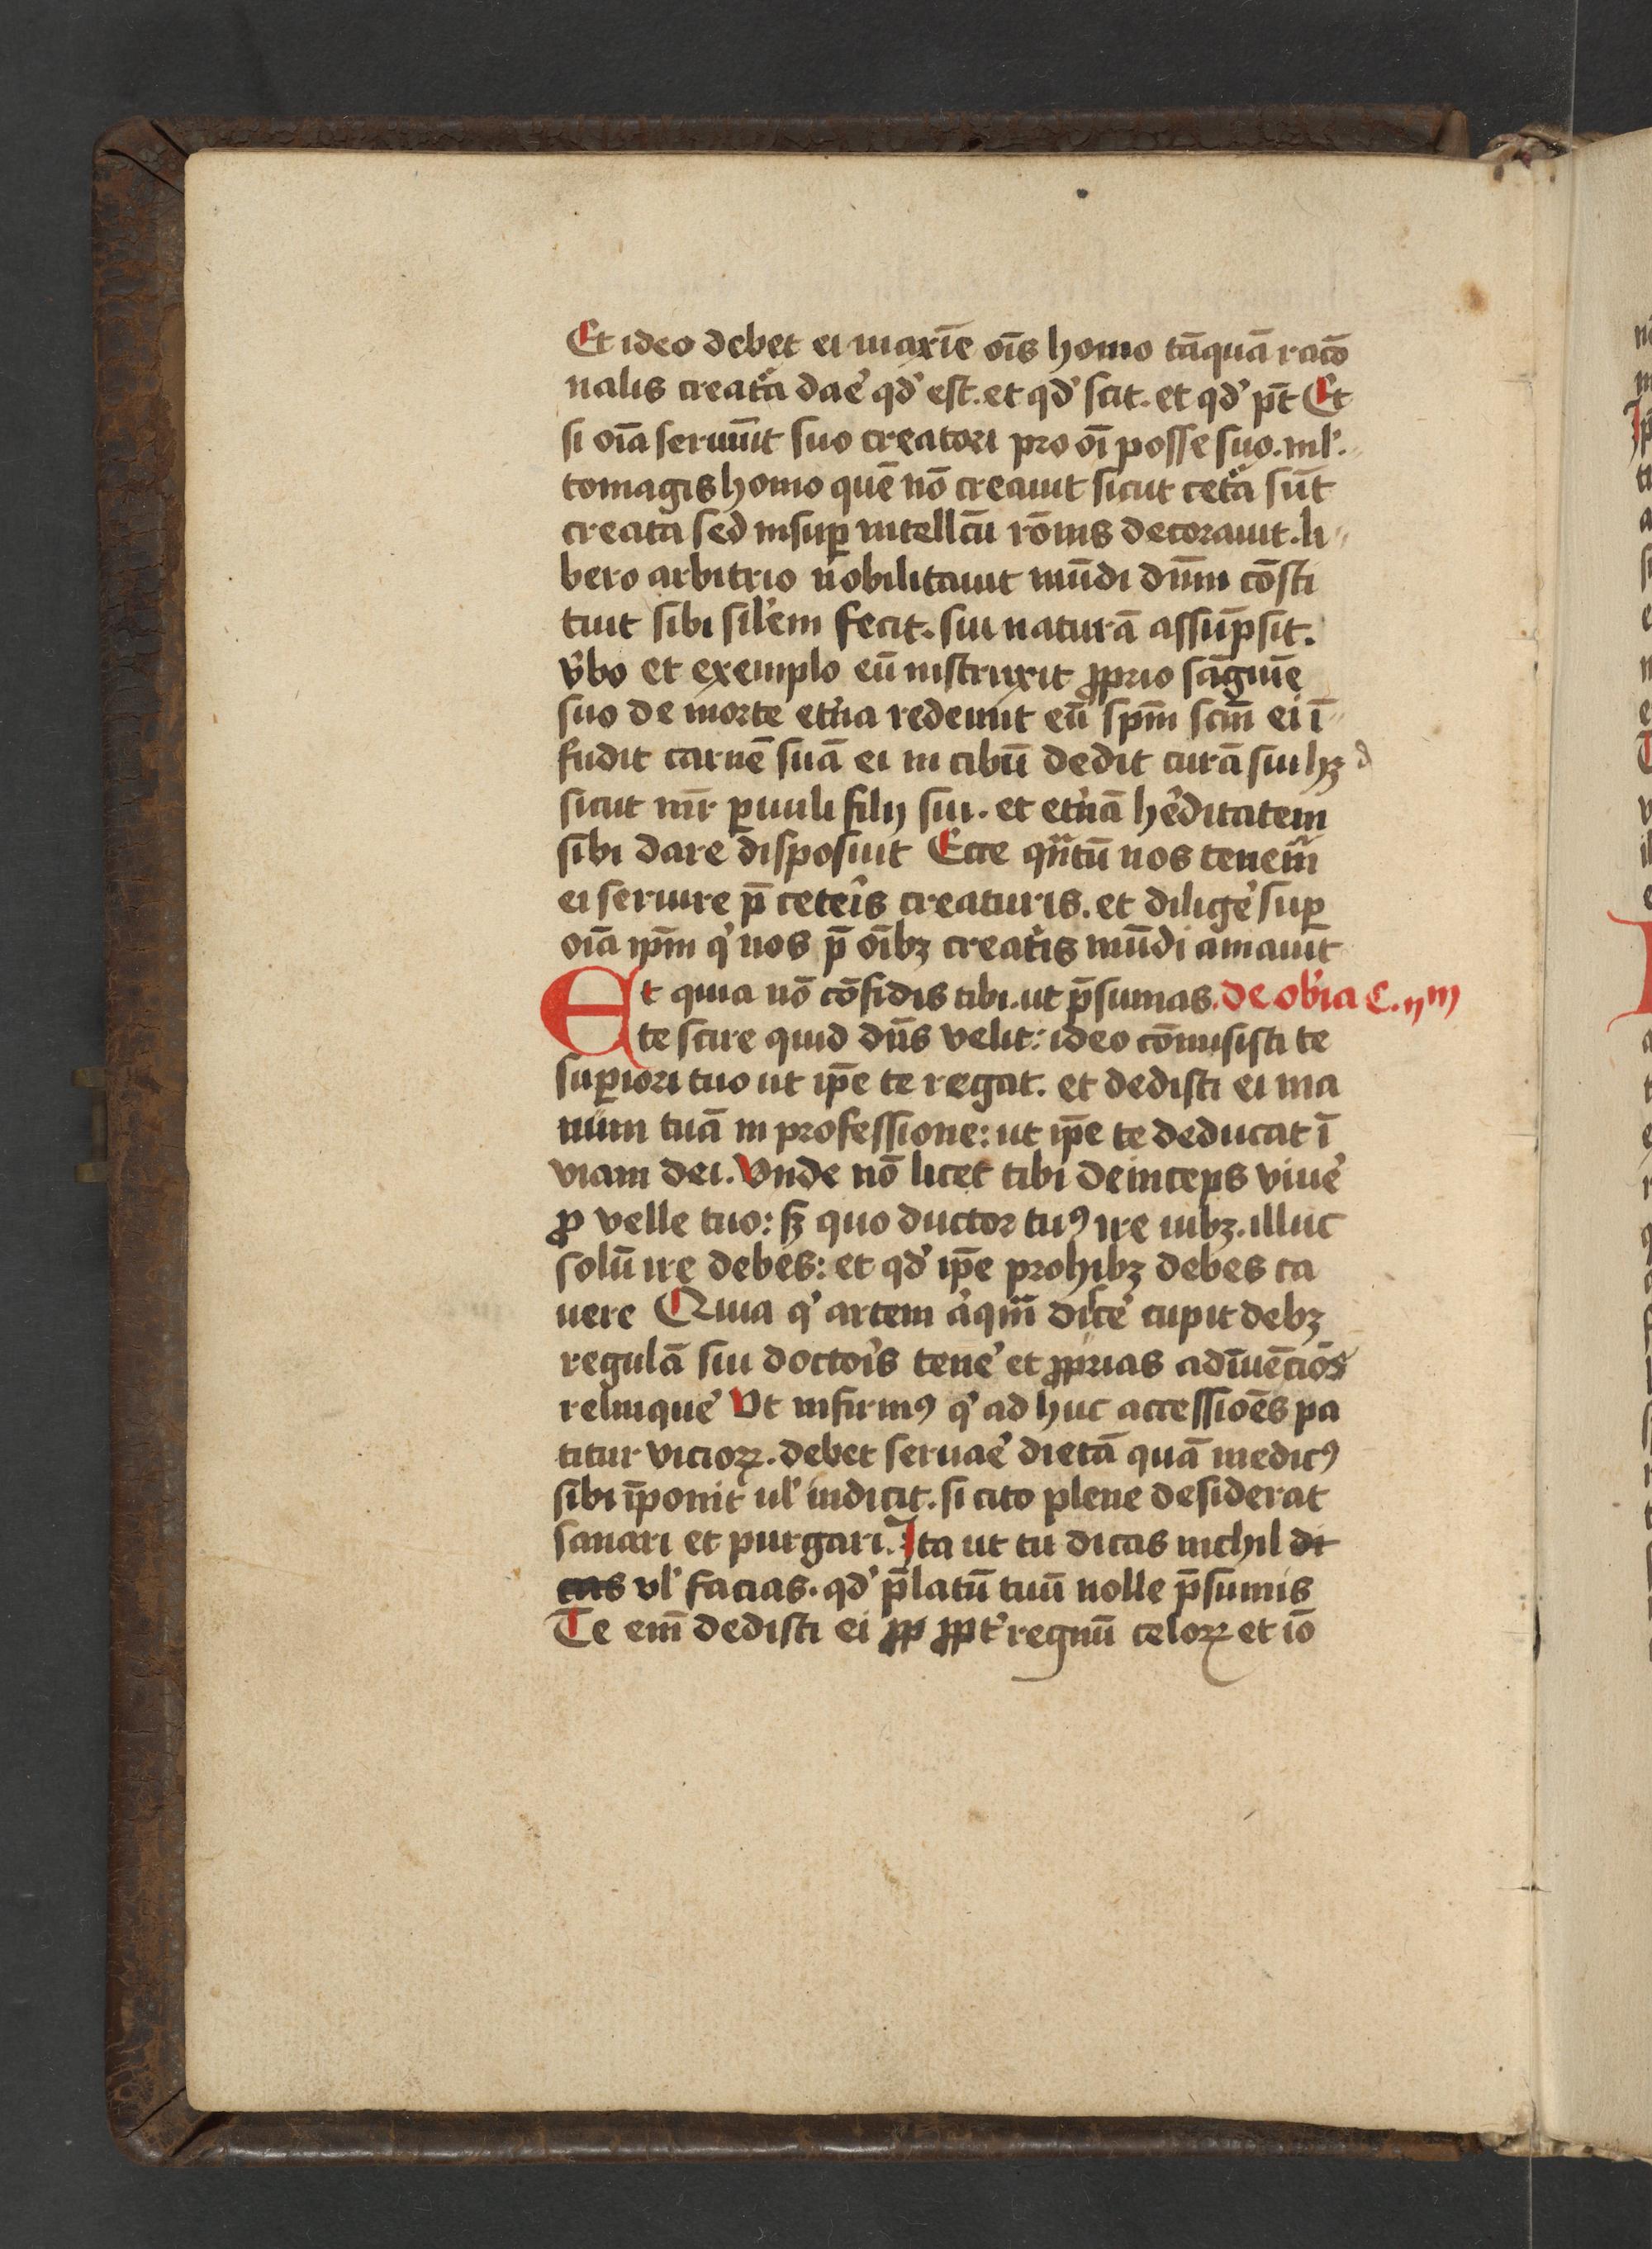 Et ideo debet ei maxīe oīs homo tāquā racō
nalis creat͛a dae͛ qd͛ est. et qd͛ scit. et qd͛ p̄t Et
si oīa seruiūt suo creatori pro oī posse suo. ml͛
tomagis homo quē nō creauit sicut cet͛a sūt
creata sed insuꝑ intellc̄u rōnis decorauit. li
bero arbitrio nobilitauit mūdi dn̄m cōsti
tuit sibi sil͛em fecit. sui naturā assūpsit.
v͛bo et exemplo eū instruxit ꝓprio sāguīe
suo de morte et͛na redemit eū sp̄m sc̄m ei ī
fudit carnē suā ei in cibū dedit curā sui hꝫ
sicut mr̄ ꝑuuli filij sui. et et͛nā he͛ditatem
sibi dare disposuit Ecce qn̄tū nos tenem͛
ei seruire p̄ cete͛is creaturis. et dilige͛ suꝑ
oīa ip̄m q͛ nos p̄ oībꝫ creat͛is mūdi amauit
Et quia nō cōfidis tibi. ut p̄sumas. de ob͛ia c. ijm
te scire quid dn̄s velit: ideo cōmisisti te
suꝑiori tuo ut ip̄e te regat. et dedisti ei ma
num tuā in professione: ut ip̄e te deducat ī
viam dei. Vnde nō licet tibi deinceps viue͛
ꝓ velle tuo: sꝫ quo ductor tuꝰ ire iubꝫ. illuc
solū ire debes: et qd͛ ip̄e prohibꝫ debes ca
uere Quia q͛ artem a͛qm̄ disce͛ cupit debꝫ
regulā sui docto͛is tene͛ et ꝓprias adīuēciōs
relinque͛ Vt infirmꝰ q͛ ad huc accessiōēs pa
titur vicioꝝ. debet seruae͛ dietā quā medicꝰ
sibi īponit ul͛ indicit. si cito plene desiderat
sanari et purgari. Ita ut tu dicas nichil di
cas vl͛ facias. qd͛ p̄latū tuū nolle p̄sumis
Te em̄ dedisti ei ꝓp ꝓpt͛ regnū celoꝝ et iō